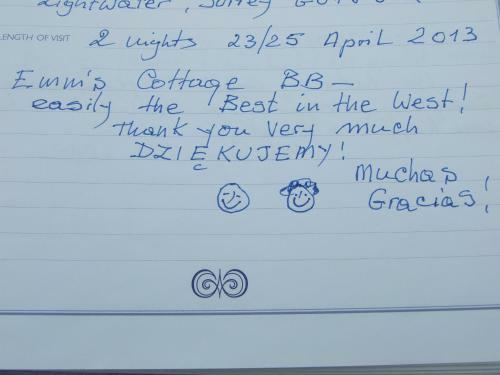 Lightwater, Surrey
LENGTH OF VISIT 2 nights 23/25 April 2013
Emm's Cottage BB –
easily the Best in the West!
Thank you very much
DZIĘKUJEMY!
Muchas
Gracias!